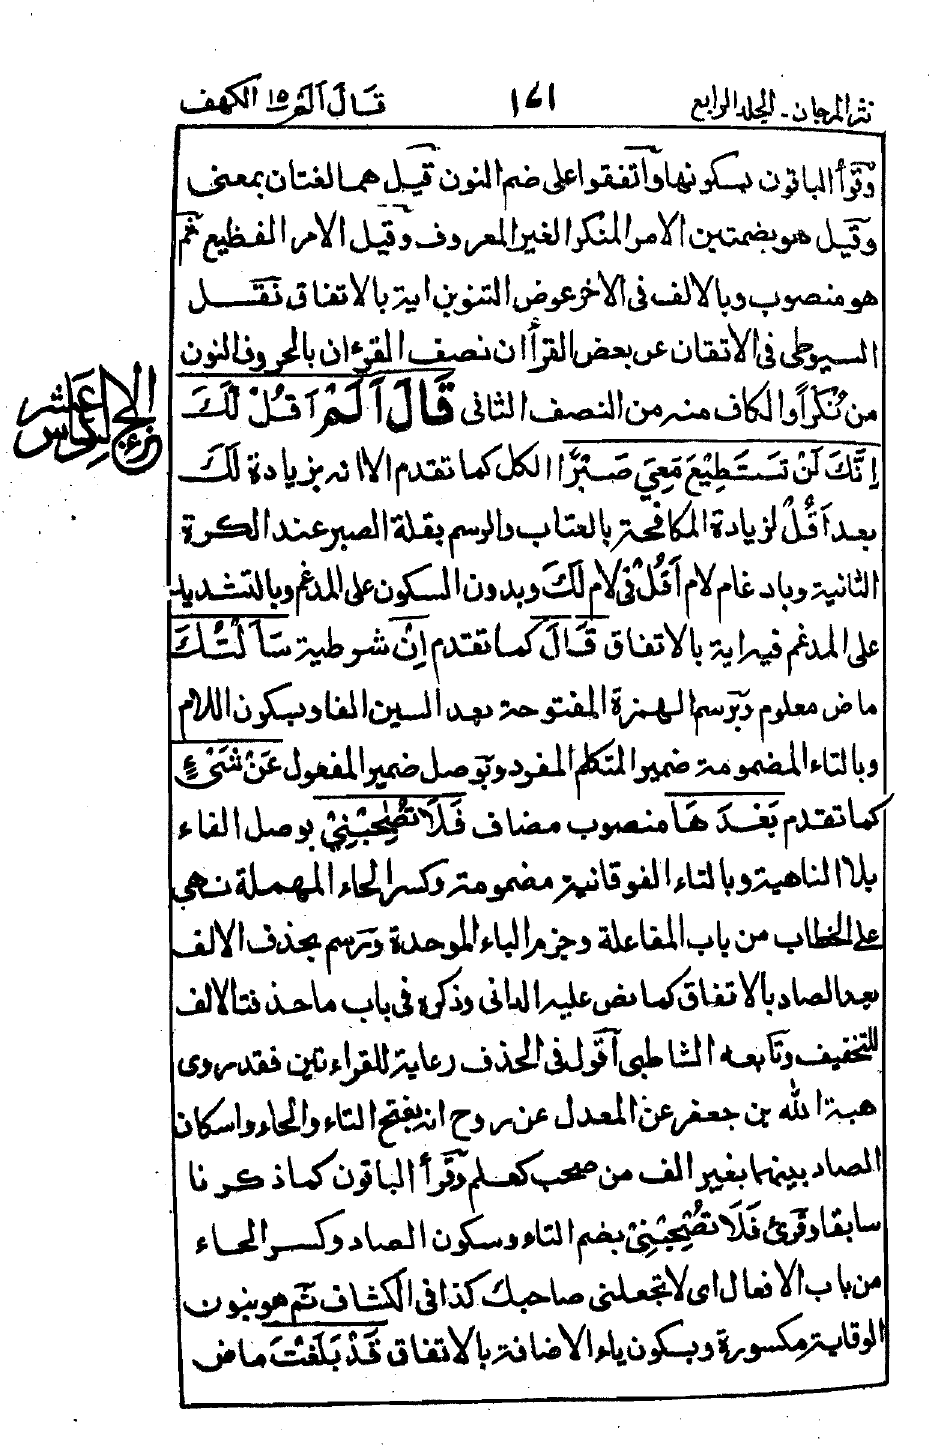 نثر المرجان - الجلد الرابع ١٧١ قَالَ اَلَمْ ١٥ الكهف
وقرأ الباقون بسكونها واتفقوا على ضم النون قيل هما لغتان بمعنى
وقيل هو بضمتين الامر المنكر الغير المعروف وقيل الامر الفظيع ثم
هو منصوب وبالالف فى الاخر عوض التنوين اية بالاتفاق نقل
السيوطى فى الاتقان عن بعض القرأ ان نصف القرءان بالحروف النون
من نُكْرًا والكاف منه من النصف الثانى قَالَ اَلَمْ اَقُلْ لَّكَ
الجزء السادس عشر
اِنَّكَ لَنْ تَسْتَطِيْعَ مَعِيَ صَبْرًا الكل كما تقدم الا انه بزيادة لَكَ
بعد اَقُلْ لزيادة المكافحة بالعتاب والوسم بقلة الصبر عند الكرة
الثانية وبادغام لام اَقُلْ فى لام لَكَ وبدون السكون على المدغم وبالتشديد
على المدغم فيه اية بالاتفاق قَالَ كما تقدم اِنْ شرطية سَاَلْتُكَ
ماض معلوم وبرسم الهمزة المفتوحة بعد السين الفا وبسكون اللام
وبالتاء المضمومة ضمير المتكلم المفرد وبوصل ضمير المفعول عَنْ شَيْءٍ
كما تقدم بَعْدَهَا منصوب مضاف فَلَا تُصٰحِبْنِيْ بوصل الفاء
بلا الناهية وبالتاء الفوقانية مضمومة وكسر الحاء المهملة نهى
على الخطاب من باب المفاعلة وجزم الباء الموحدة ورسم بحذف الالف
بعد الصاد بالاتفاق كما نص عليه الدانى وذكره فى باب ما حذفت الالف
للتخفيف وتابعه الشاطبى اقول فى الحذف رعاية للقراءتين فقد روى
هبة الله بن جعفر عن المعدل عن روح انه بفتح التاء والحاء واسكان
الصاد بينهما بغير الف من صحب كعلم وقرأ الباقون كما ذكرنا
سابقا وقرئ فَلَا تُصْحِبْنِيْ بضم التاء وسكون الصاد وكسر الحاء
من باب الافعال اى لا تجعلنى صاحبك كذا فى الكشاف ثم هو بنون
الوقاية مكسورة وبسكون ياء الاضافة بالاتفاق قَدْ بَلَغْتَ ماض